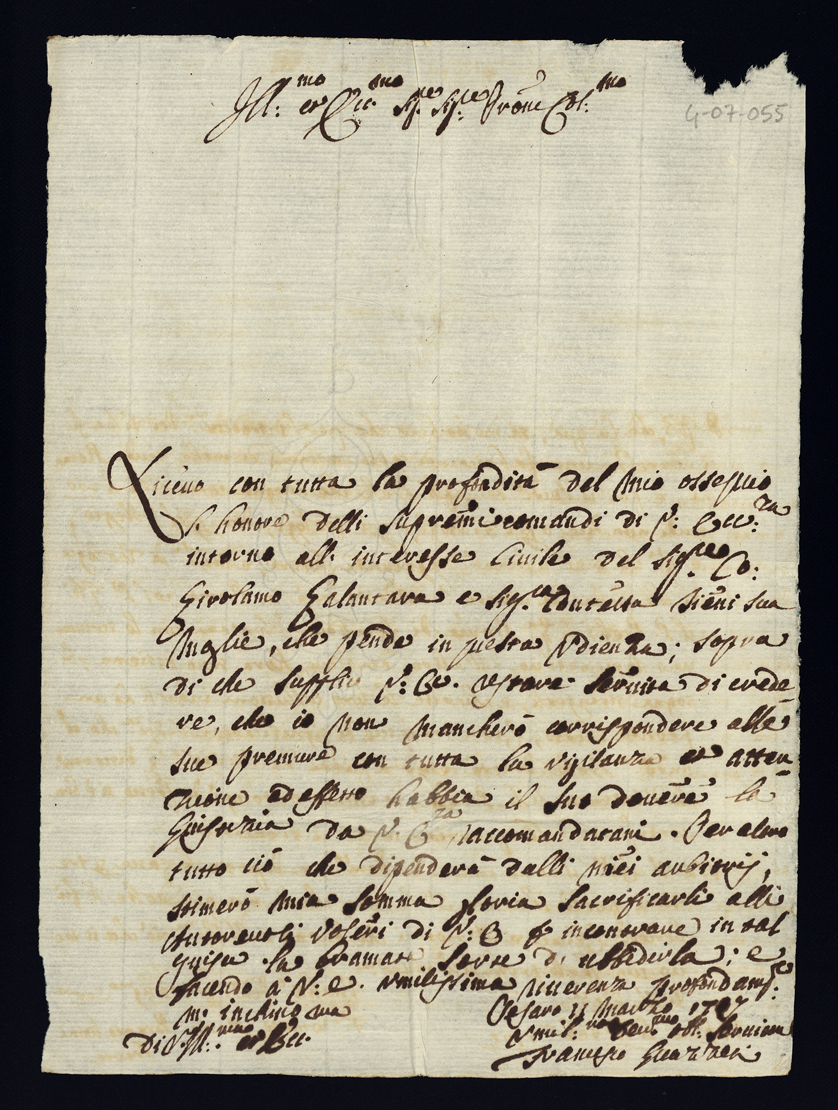 Ill:mo et Ecc:mo Sig:re Sig:re Prone Col:mo
G-07-055
Riceuo con tutta la profondità del mio ossequio
l'honore delli supremi comandi di V: Ecc:za
intorno all' interesse Ciuile del sig:re Co:
Girolamo Galantara e sig:ra Contessa sua
Moglie, che pende in questa Vdienza; sopra
di che supplico V: Ecc. restare seruita di crede-
re, che io non mancherò corrispondere alle
sue premure con tutta la vigilanza et atten
zione ad effetto habbia il suo douere la
Giustizia da V: E:za raccomandatami. Per altro
tutto ciò che dipenderà dalli miei arbitrij,
stimerò mia somma gloria sacrificarli alli
Autoreuoli voleri di V: E p incontrare in tal
guisa la bramata sorte di ubbidirla; e
facendo à V: E. vmilissima riuerenza profondam:e
m' inchino
Pesaro 11 Marzo
Di V. Ill:ma et Ecc.
Vmil:mo Deu:mo obl: Seruitore
Francesco